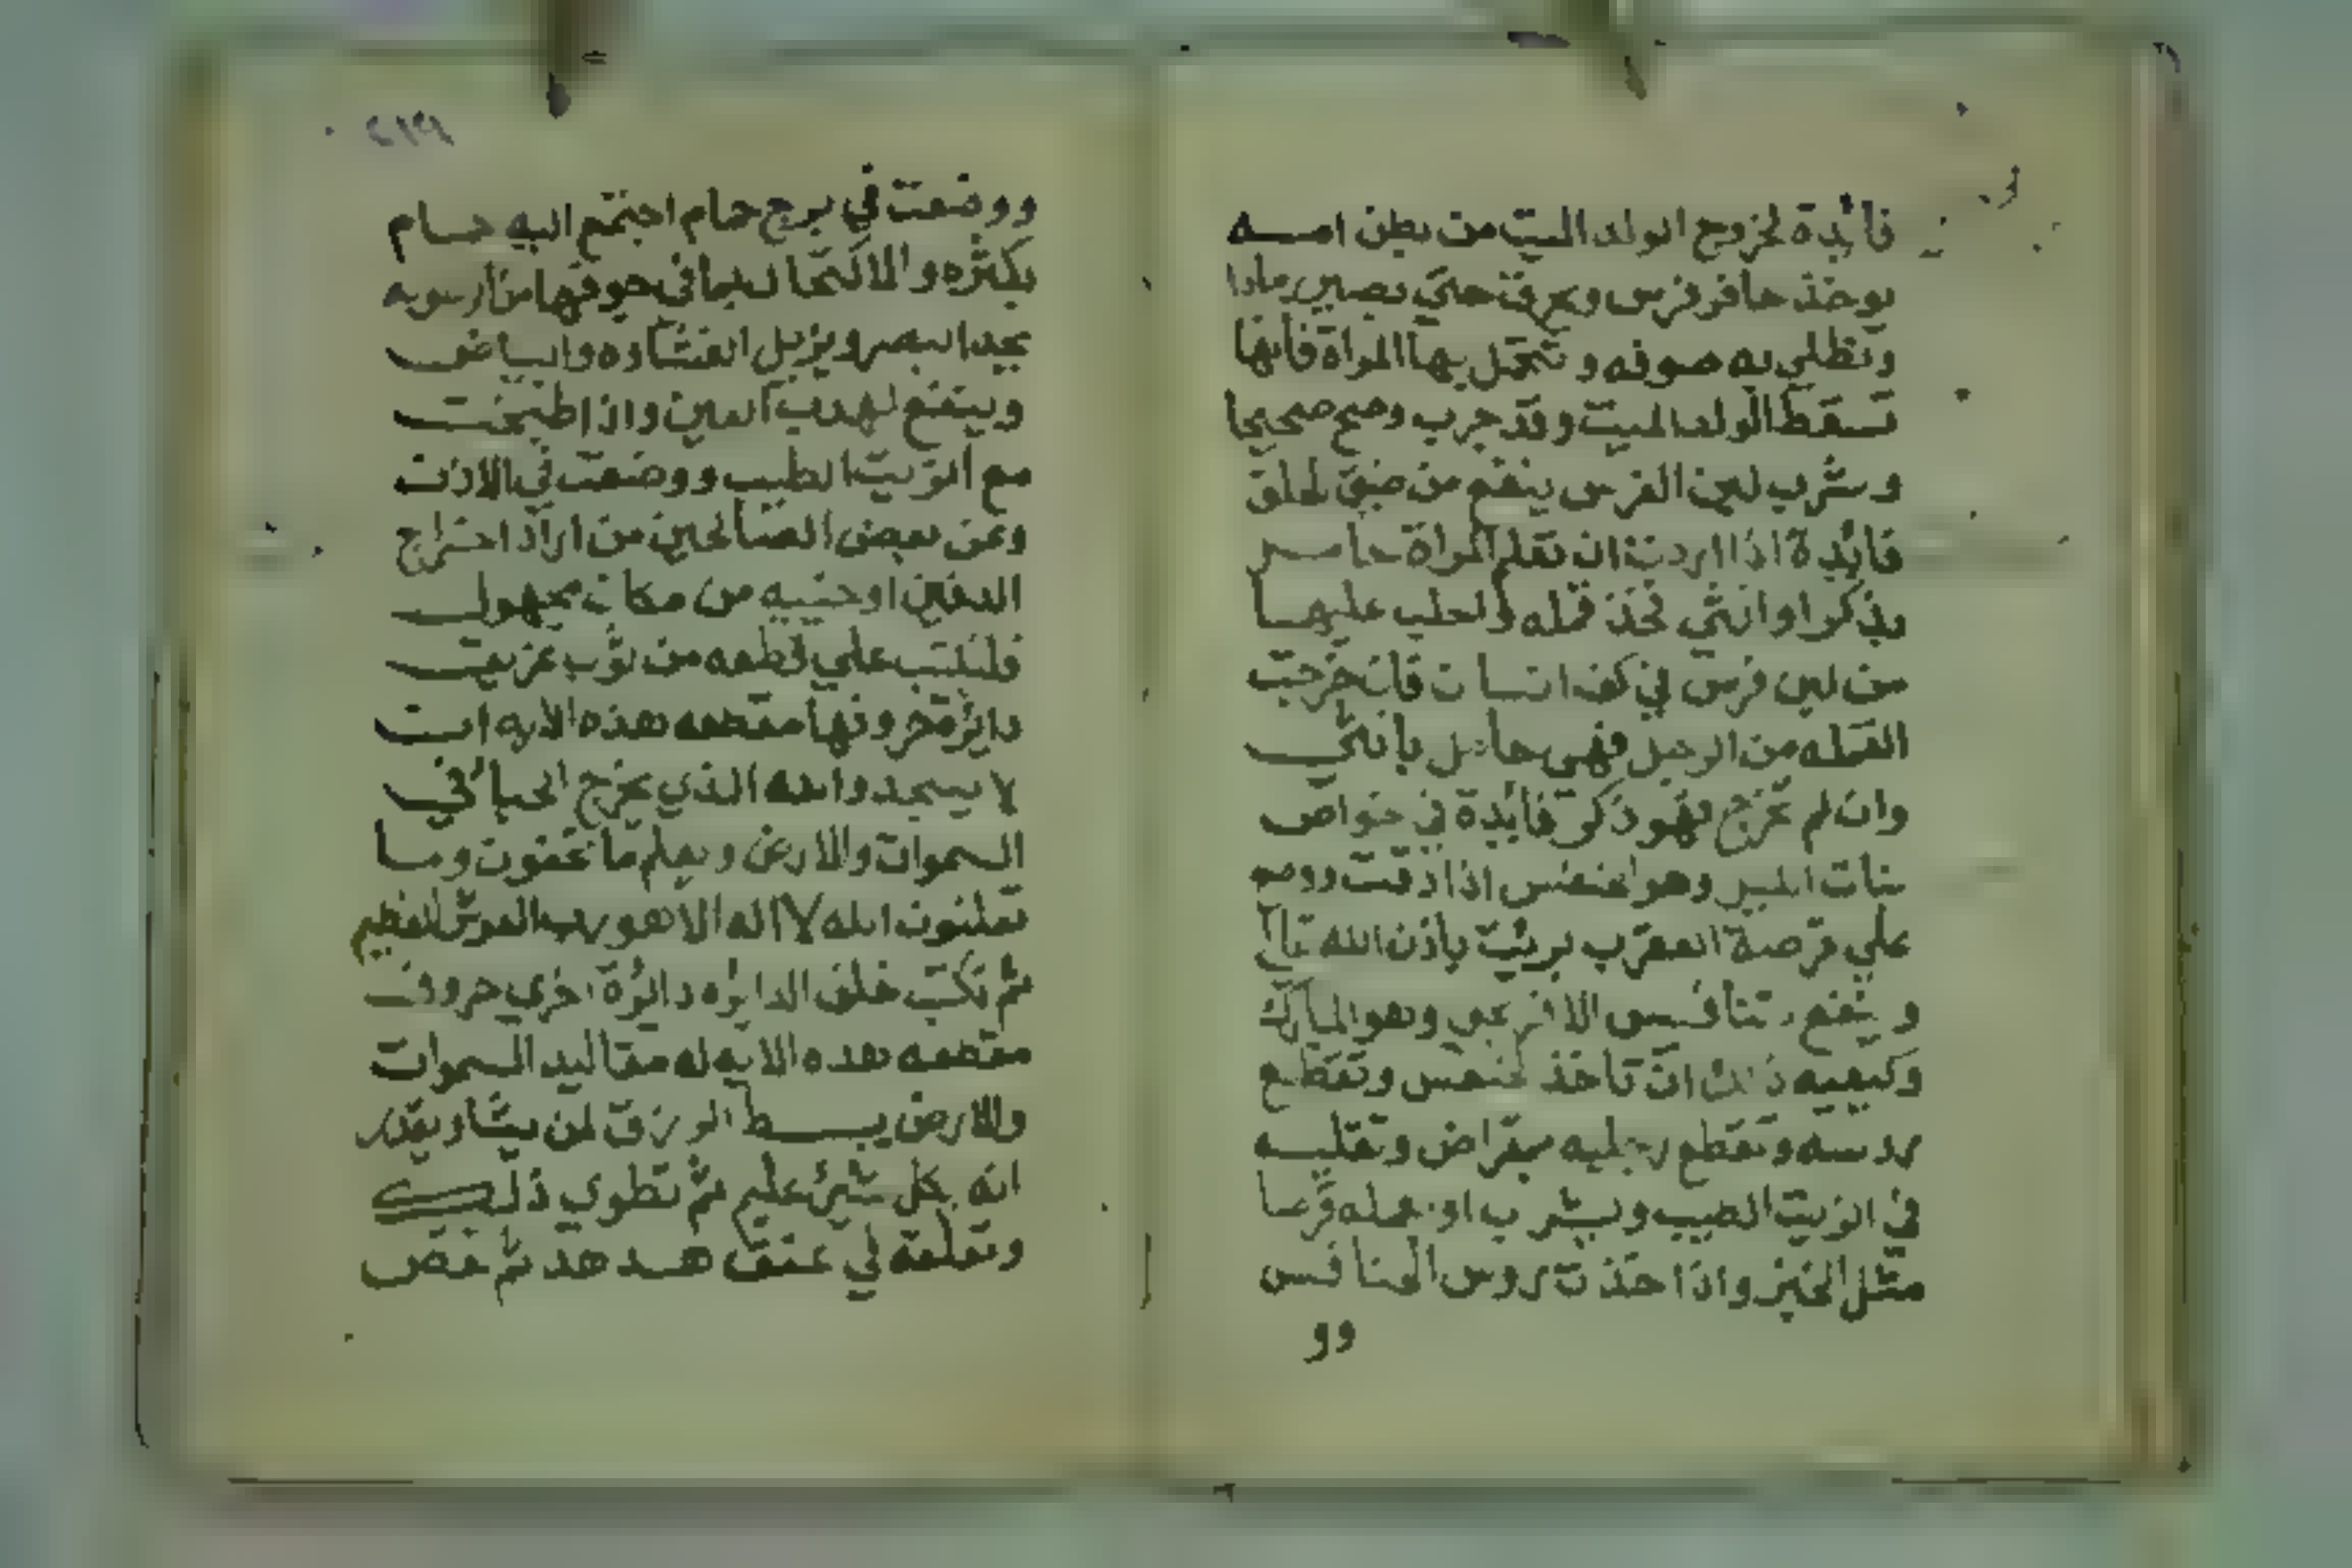 فائدة لخروج الولد الميت من بطن امـــه
يوخذ حافر فرس ويحرق حتي يصير رمادا
وتطلي به صوفه و تتحمل بها المراة فانها
تسقط الولد الميت وقد جرب وصح صحيحا
وشرب لبن الفرس ينفع من ضيق الحلق
فائدة اذا اردت ان تعلم المراة حامـــل
بذكر او انثي تخذ قمله واحلب عليهــا
من لبن فرس في كف انسان فان خرجت
القمله من الرجل فهي حامل بانثي
وان لم تخرج فهو ذكر فائدة في خواص
بنات وهو الخنفس اذا دقت ووضع
علي قرصة العقرب بريت باذن الله تعالي
و ينفع
وكيفيه ذلك ان تاخذ الخنفس وتقطع
روسه وتقطع رجليه بمقراض وتقليـــه
في الزيت الطيب ويشرب او
مثل الخبز واذا اخذت روس الخنافس
وو
٢١٩
ووضعت في برج حمام اجتمع اليه حمـام
بكثره والاكتحال بما في جوفها من الرسوبه
يحد البصر ويزيل الغشاوه والبياض
وينفع لهدب العين واذا طبخت
مع الزيت الطيب ووضعت في الاذن
وعن بعض الصالحين من اراد اخراج
الدفين او خبيه من مكان مجهول
فليكتب علي قطعه من ثوب
دائرة حرونها مقطعه هذه الايه ان
لا يسجدوا لله الذي يخرج الخبا في
السموات والارض ويعلم ما تخفون ومــا
تعلنون الله لا اله الا هو رب العرش العظيم
ثم تكتب خلف الدايره دائرة اخري حروف
مقطعه هده الايه له مقاليد السموات
والارض يبســط الرزق لمن يشا ويقدر
انه بكل شئ عليم ثم تطوي ذلـــك
وتعلقه في عنق هــد هد ثم